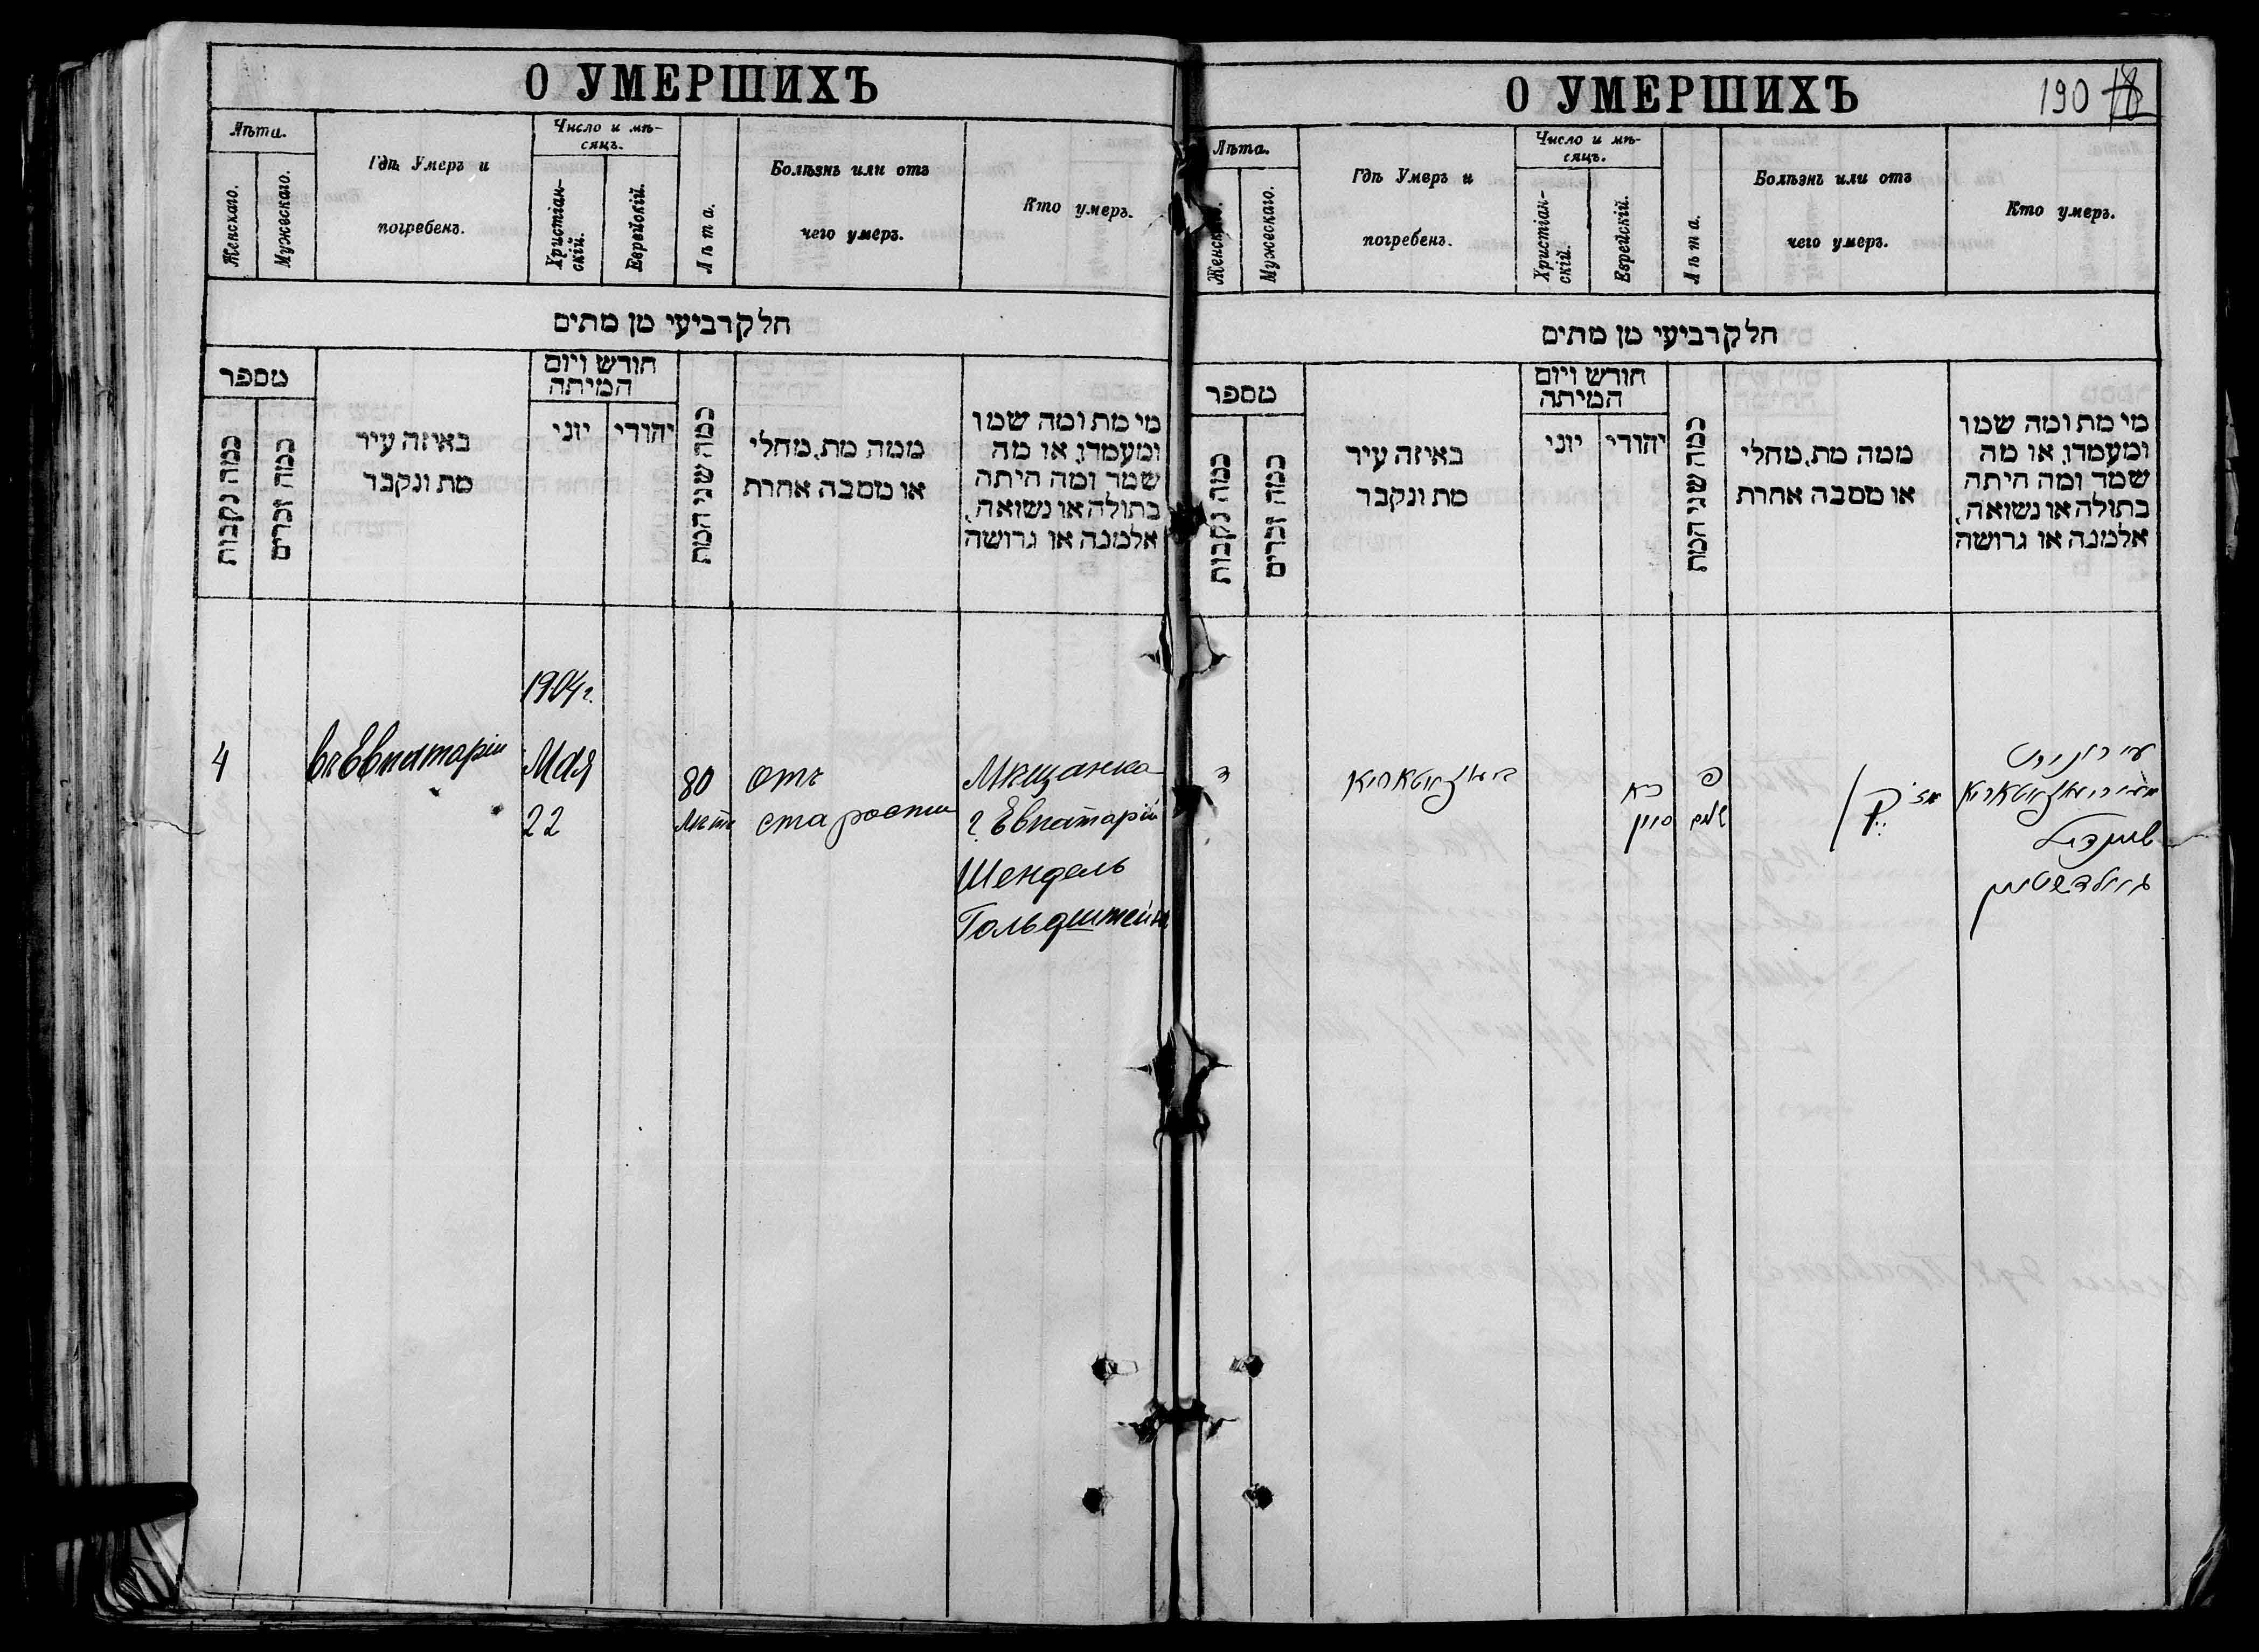 О УМЕРШИХЪ
Лѣта.
Женскаго.
Мужескаго.
Гдѣ Умеръ и
погребенъ.
Число и мѣ-
сяцъ.
Христіан-
скій.
Еврейскій.
Лѣта.
Болѣзнь или отъ
чего умеръ.
Кто умеръ.
חלק רביעי מן מתים
מספר
כמה נקבות
כמה זכרים
באיזה עיר
מת ונקבר
חורש ויום
המיתה
יוני
יהודי
כמה שני המת
ממה מת, מחלי
או מסבה אחרת
מי מת ומה שמו
ומעמדו, או מה
שמר ומה היתה
בתולה או נשואה,
אלמנה או גרושה
1904 г.
4
въ Евпаторіи
Мая
22
80
лѣтъ
отъ
старости
Мѣщанка
г. Евпаторіи
Шендель
Гольдштейнъ
О УМЕРШИХЪ
190
Лѣта.
Женскаго.
Мужескаго.
Гдѣ Умеръ и
погребенъ.
Число и мѣ-
сяцъ.
Христіан-
скій.
Еврейскій.
Лѣта.
Болѣзнь или отъ
чего умеръ.
Кто умеръ.
חלק רביעי מן מתים
מספר
כמה נקבות
כמה זכרים
באיזה עיר
מת ונקבר
חורש ויום
המיתה
יוני
יהודי
כמה שני המת
ממה מת, מחלי
או מסבה אחרת
מי מת ומה שמו
ומעמדו, או מה
שמר ומה היתה
בתולה או נשואה,
אלמנה או גרושה
ד
כא
סיון
פ
שנים
שיינדיל
גאלדשטיין